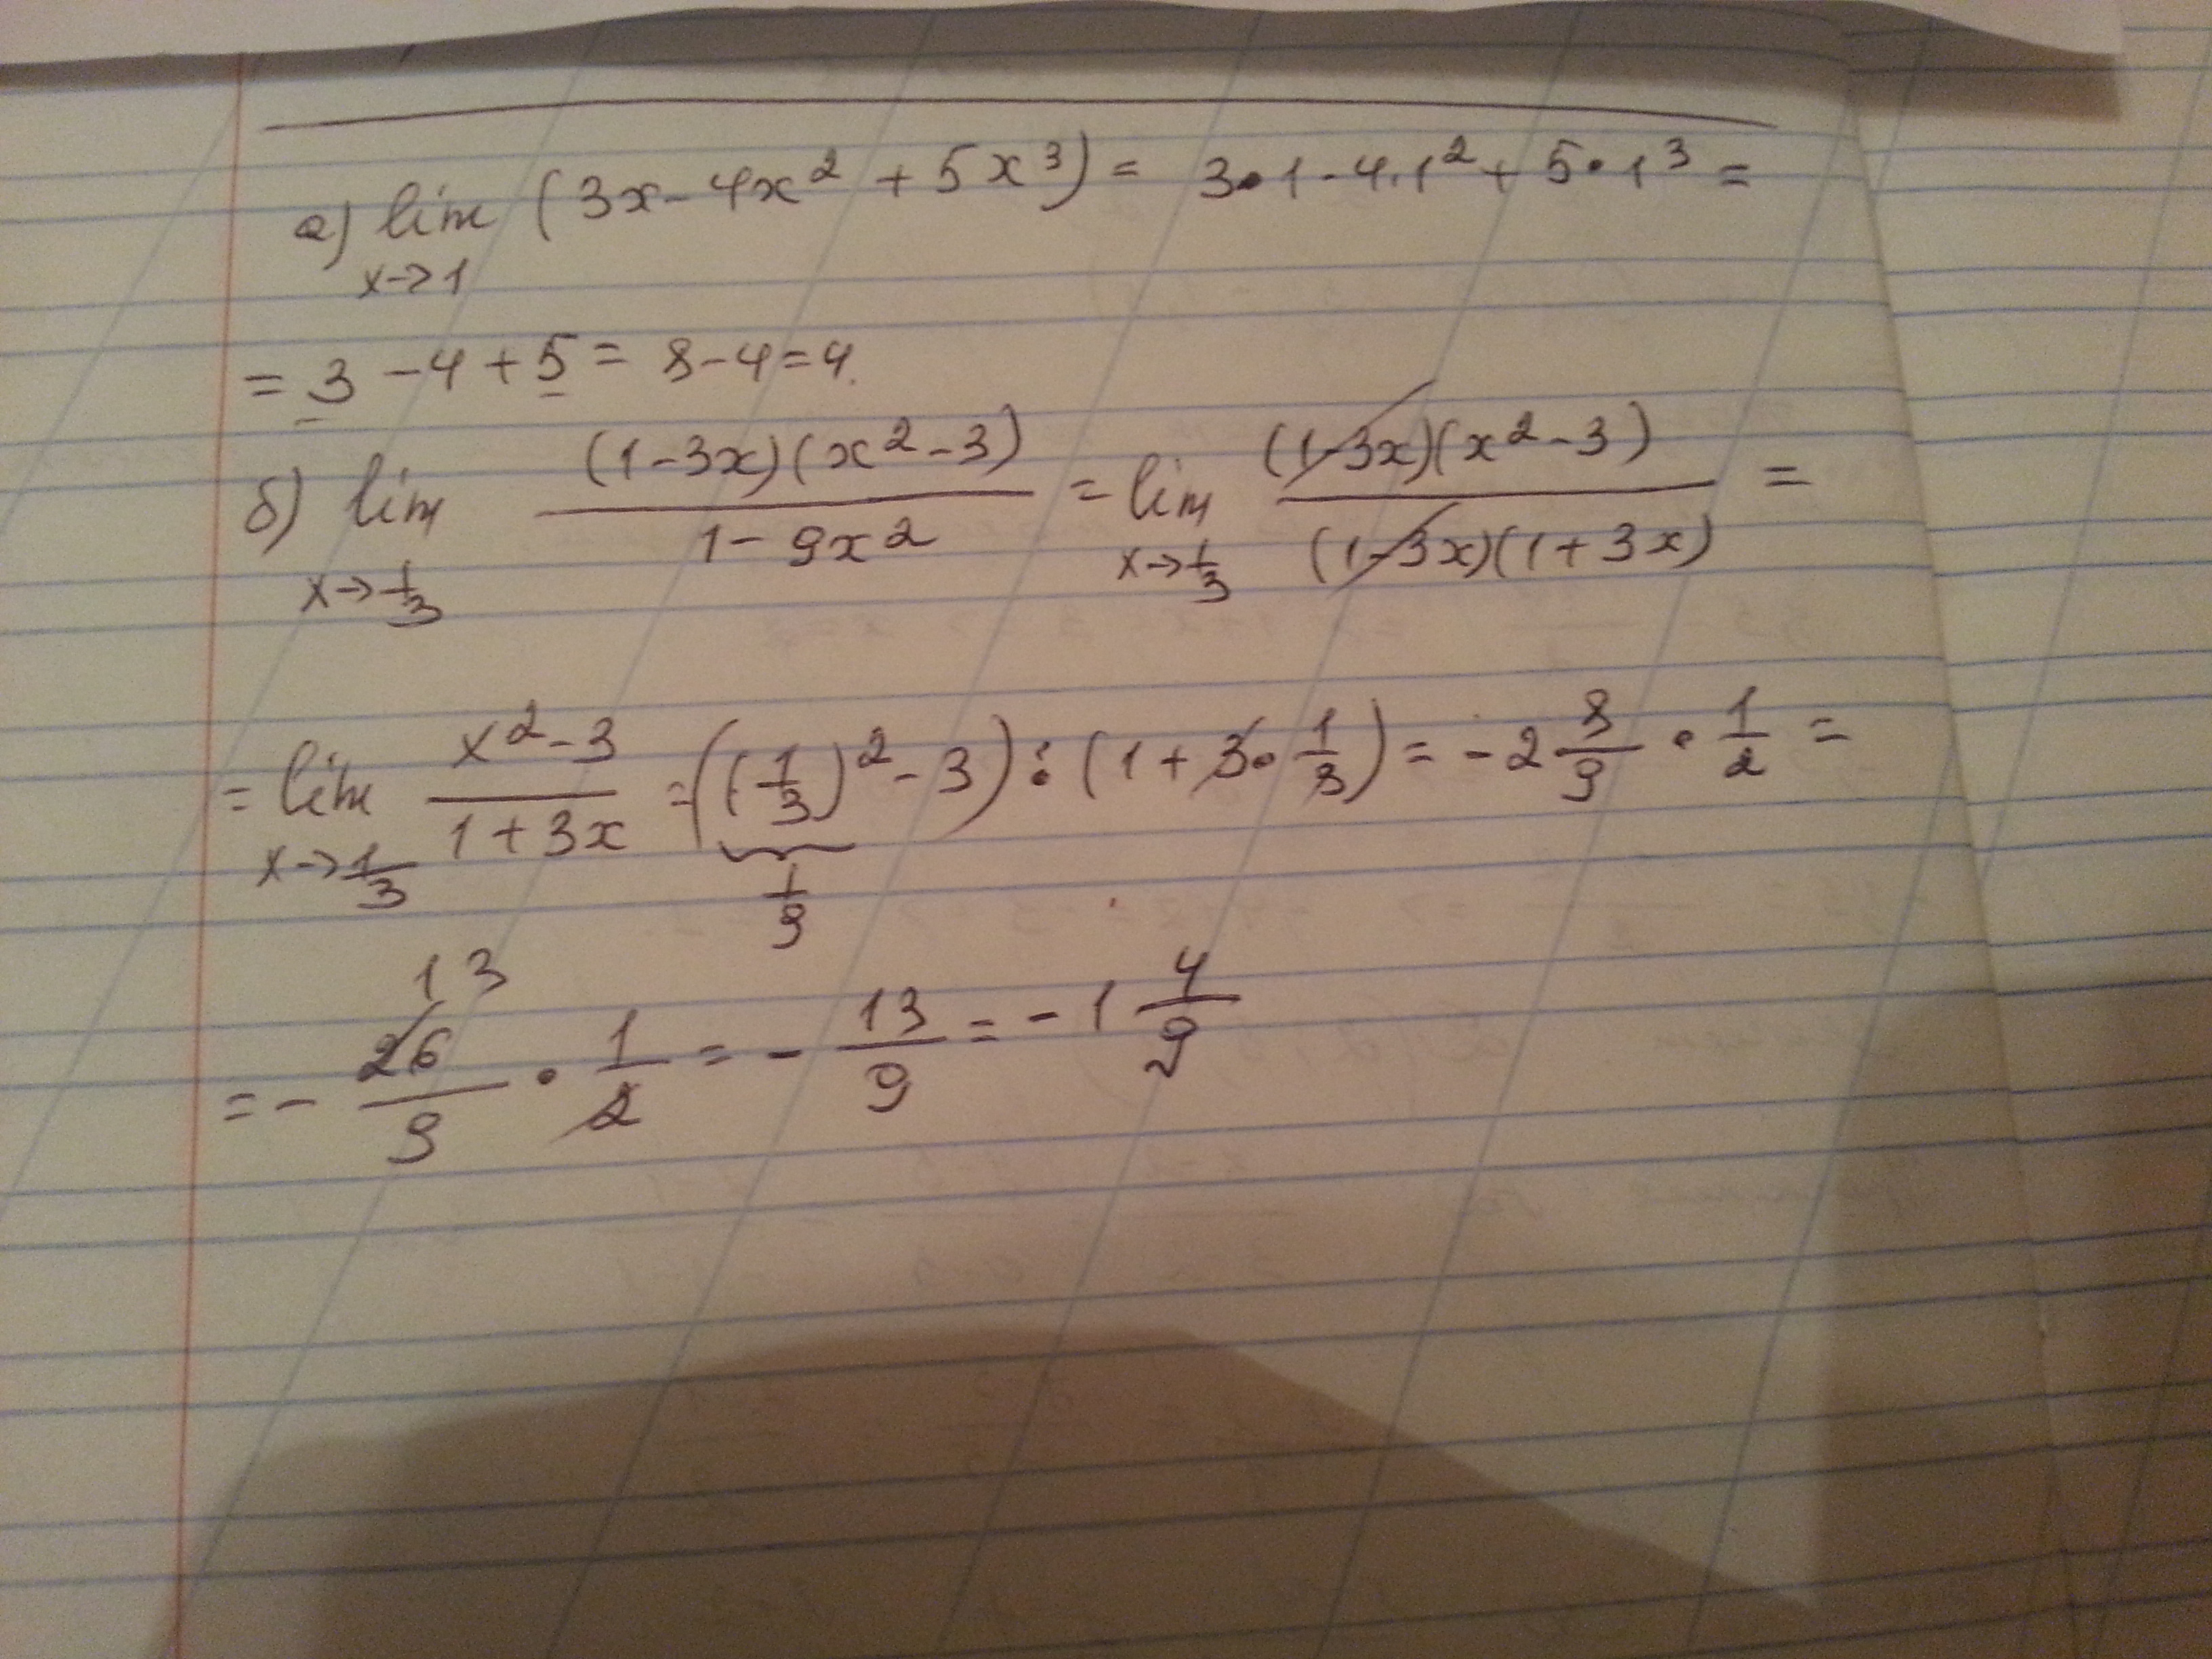 а) lim (3x - 4x² + 5x³) = 3•1 - 4•1² + 5•1³ =
x→1
= 3 - 4 + 5 = 8 - 4 = 4.
б) lim (1-3x)(x²-3) / 1-9x² = lim (1-3x)(x²-3) / (1-3x)(1+3x) =
x→1/3 x→1/3
= lim x²-3 / 1+3x = ((1/3)² - 3) : (1 + 3•1/3) = -2 8/9 • 1/2 =
x→1/3 1/9
13
= - 26/9 • 1/2 = - 13/9 = -1 4/9